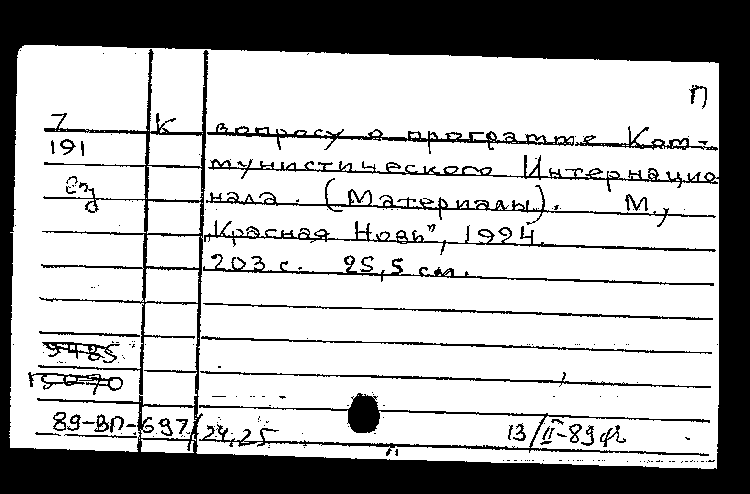 П
7 К вопросу о программе Ком-
191 мунистического Интернацио-
нала. (Материалы). М.,
„Красная Новь", 1924.
203 с. 25,5 см.
9485
15070
89-ВП-697/24,25 13/II-89